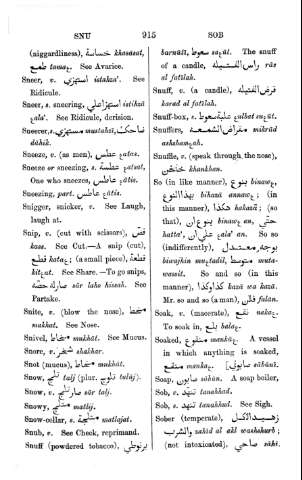 SNU 915 SOB
(niggardliness), خساسة khasásat,
طمع tamaع. See Avarice.
Sneer, v. استهزى istahza'. See
Ridicule.
Sneer, s. sneering, استهزا على istihzá
عala'. See Ridicule, derision.
Sneerer, s. مستهزى mustahzi, ضاحك
dáhik.
Sneeze, v. (as men), عطس عatas.
Sneeze or sneezing, s. عطسة عatsat,
One who sneezes, عاطس عátis.
Sneezing, part. عاطس عátis.
Snigger, snicker, v. See Laugh,
laugh at.
Snip, v. (cut with scissors), قص
kass. See Cut.—A snip (cut),
قطع kataع; (a small piece), قطعة
kitعat. See Share.—To go snips,
صار له حصة sár laho hissah. See
Partake.
Snite, v. (blow the nose), مخط
makhat. See Nose.
Snivel, مخاط mukhát. See Mucus.
Snore, v. شخر shakhar.
Snot (mucus), مخاط mukhát.
Snow, ثلج talj (plur. ثلوج tulúj).
Snow, v. صار ثلج sár talj.
Snowy, مثلج matlij.
Snow-cellar, s. مثلجة matlajat.
Snub, v. See Check, reprimand.
Snuff (powdered tobacco), برنوطي
barnúti, سعوط saعút. The snuff
of a candle, راس الفتيلة rás
al fatílah.
Snuff, v. (a candle), قرض الفتيلة
karad al fatílah.
Snuff-box, s. علبة سعوط عulbat saعút.
Snuffers, مقراض الشمعة mikrád
ashshamعah.
Snuffle, v. (speak through the nose),
خنخن khankhan.
So (in like manner), بنوع binawع,
بهذا النوع biházá annawع; (in
this manner), هكذا hakazá; (so
that), بنوع ان binawع an, حتى
hatta', على ان عala' an. So so
(indifferently), بوجه معتدل
biwajhin muعtadil, متوسط muta-
wassit. So and so (in this
manner), كذا وكذا kazá wa kazá.
Mr. so and so (a man), فلان fulán.
Soak, v. (macerate), نقع nakaع.
To soak in, بلع balaع.
Soaked, منقوع mankúع. A vessel
in which anything is soaked,
منقع mankaع. [صابون sábúni.
Soap, صابون sábún. A soap boiler,
Sob, v. تنهد tanahhad.
Sob, s. تنهد tanahhud. See Sigh.
Sober (temperate), زهيد الاكل
والشرب zahíd al akl washshurb;
(not intoxicated), صاحي sáhi.